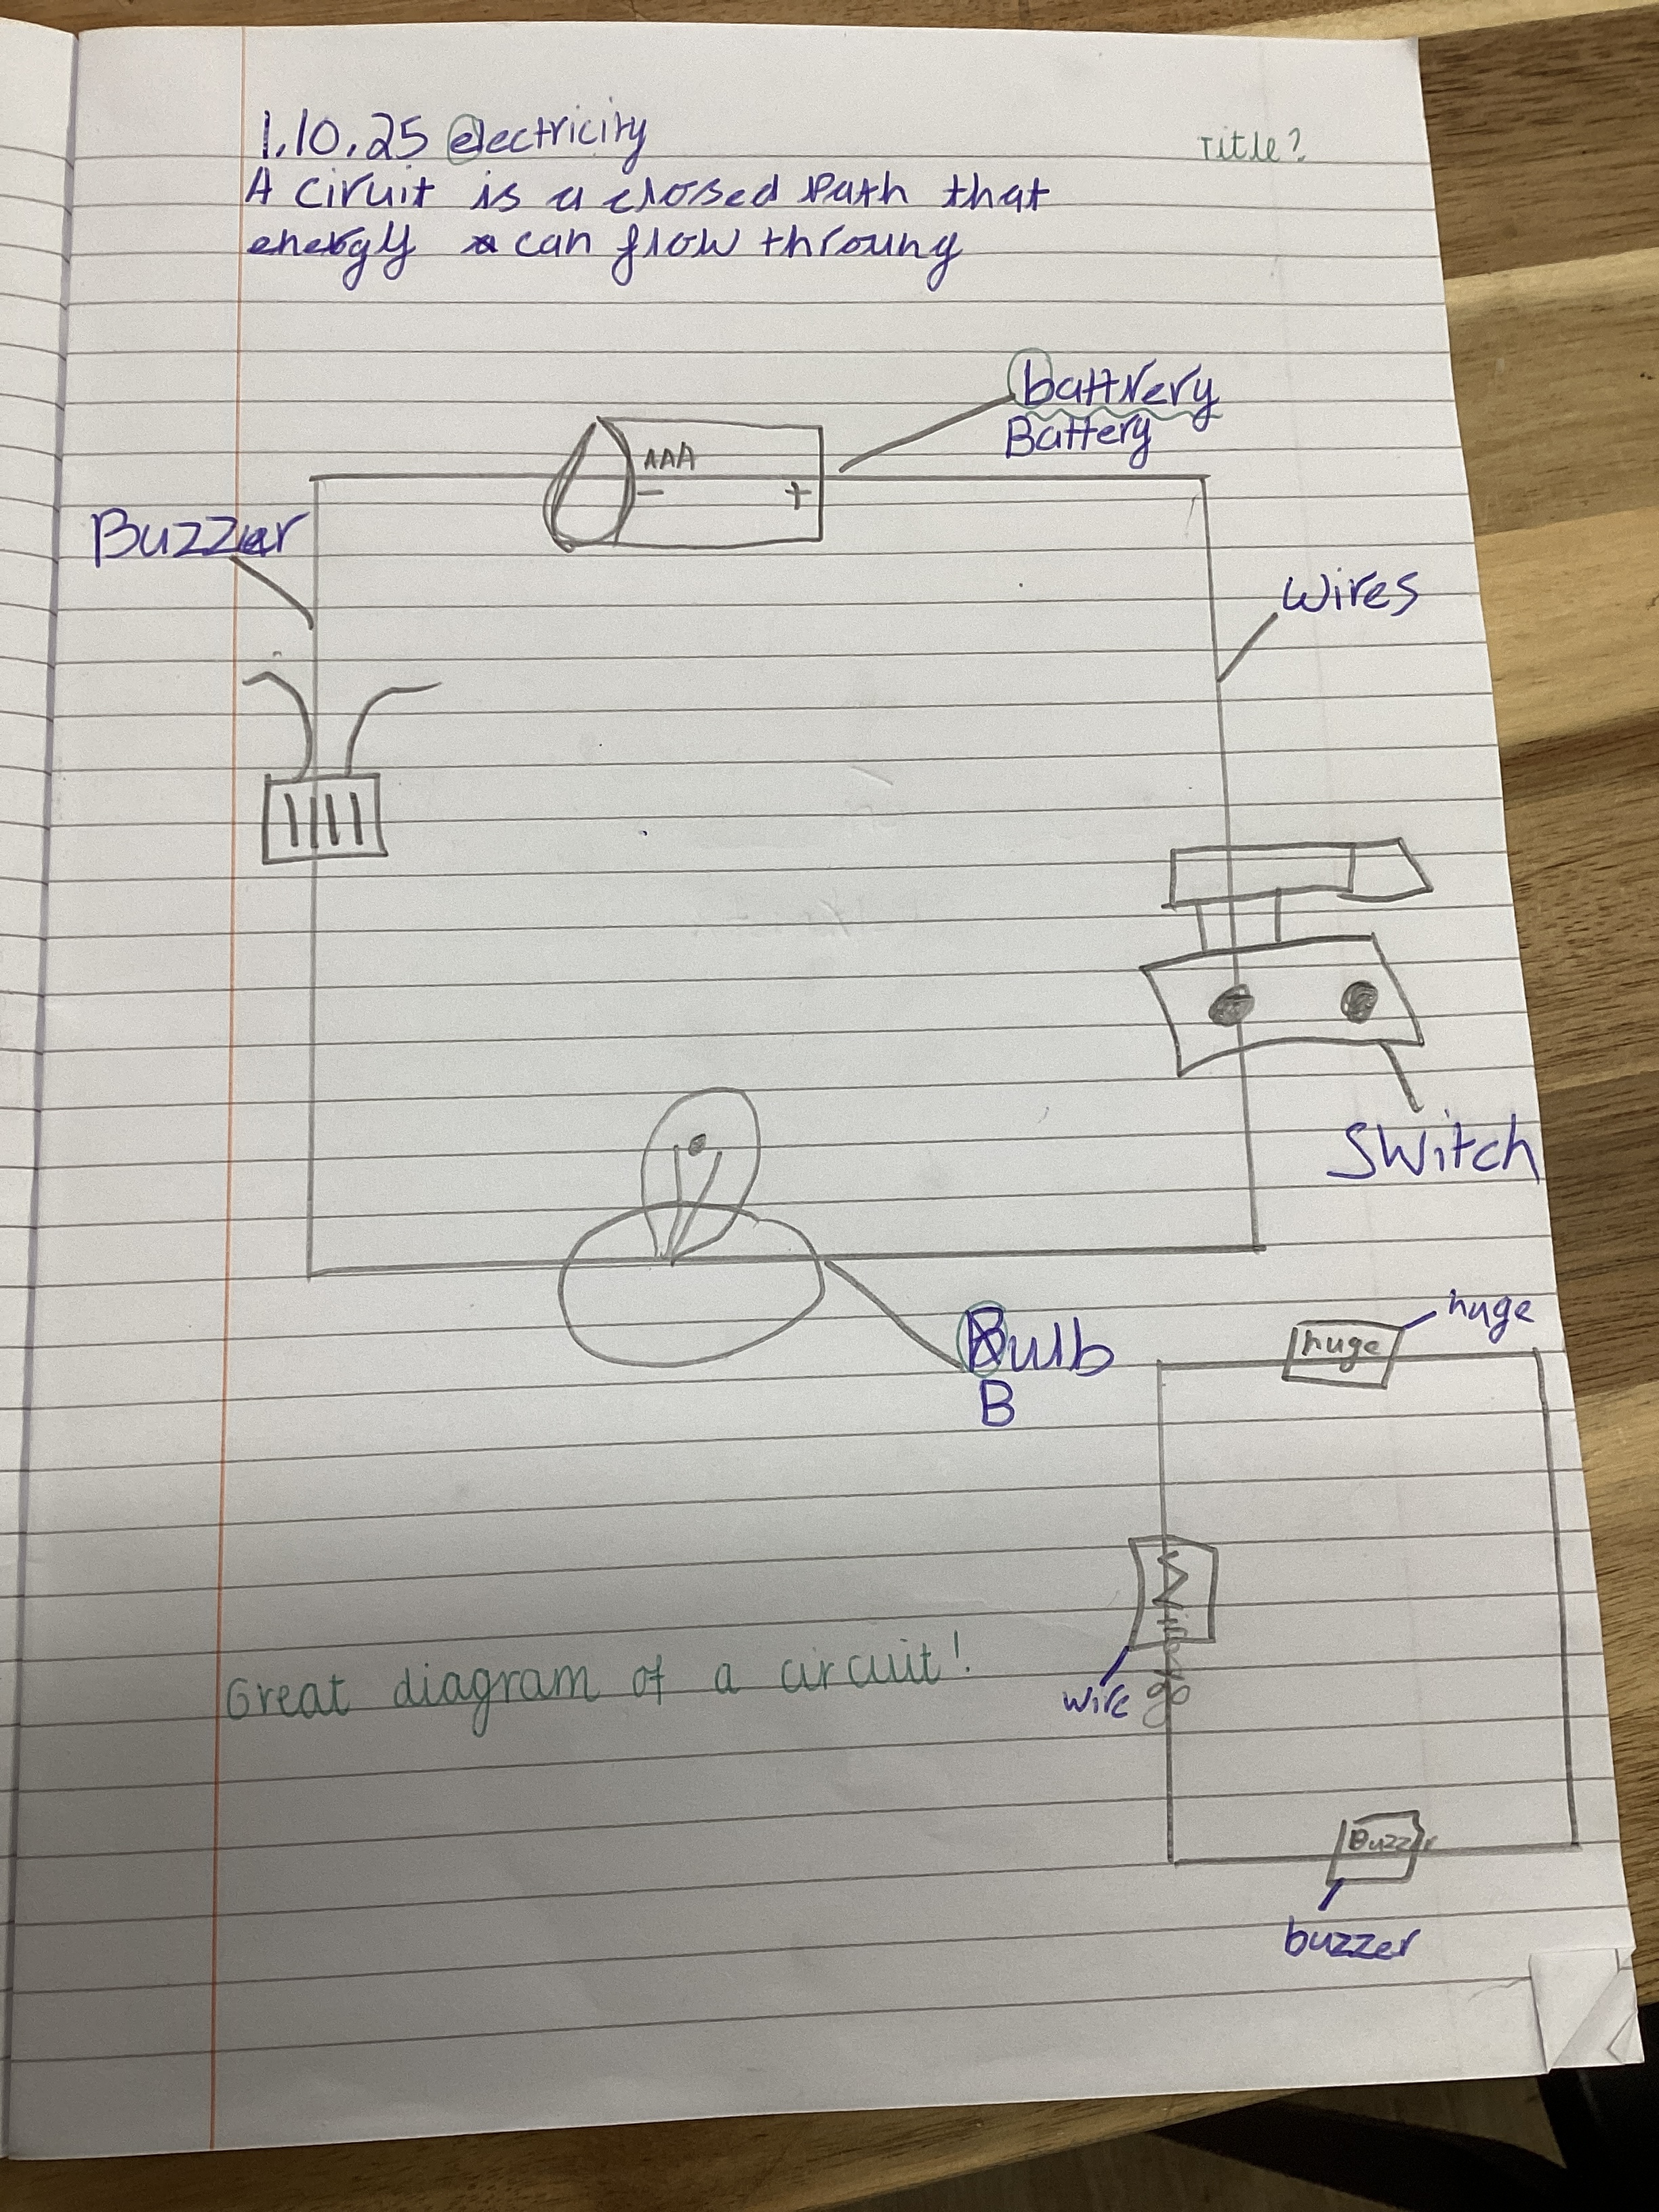 1.10.25 electricity
Title?
A ciruit is a closed Path that
energy can flow throung
battrery
Battery
AAA
- +
Buzzer
wires
Switch
Bulb
B
huge
huge
wire go
Great diagram of a circuit!
Buzzr
buzzer